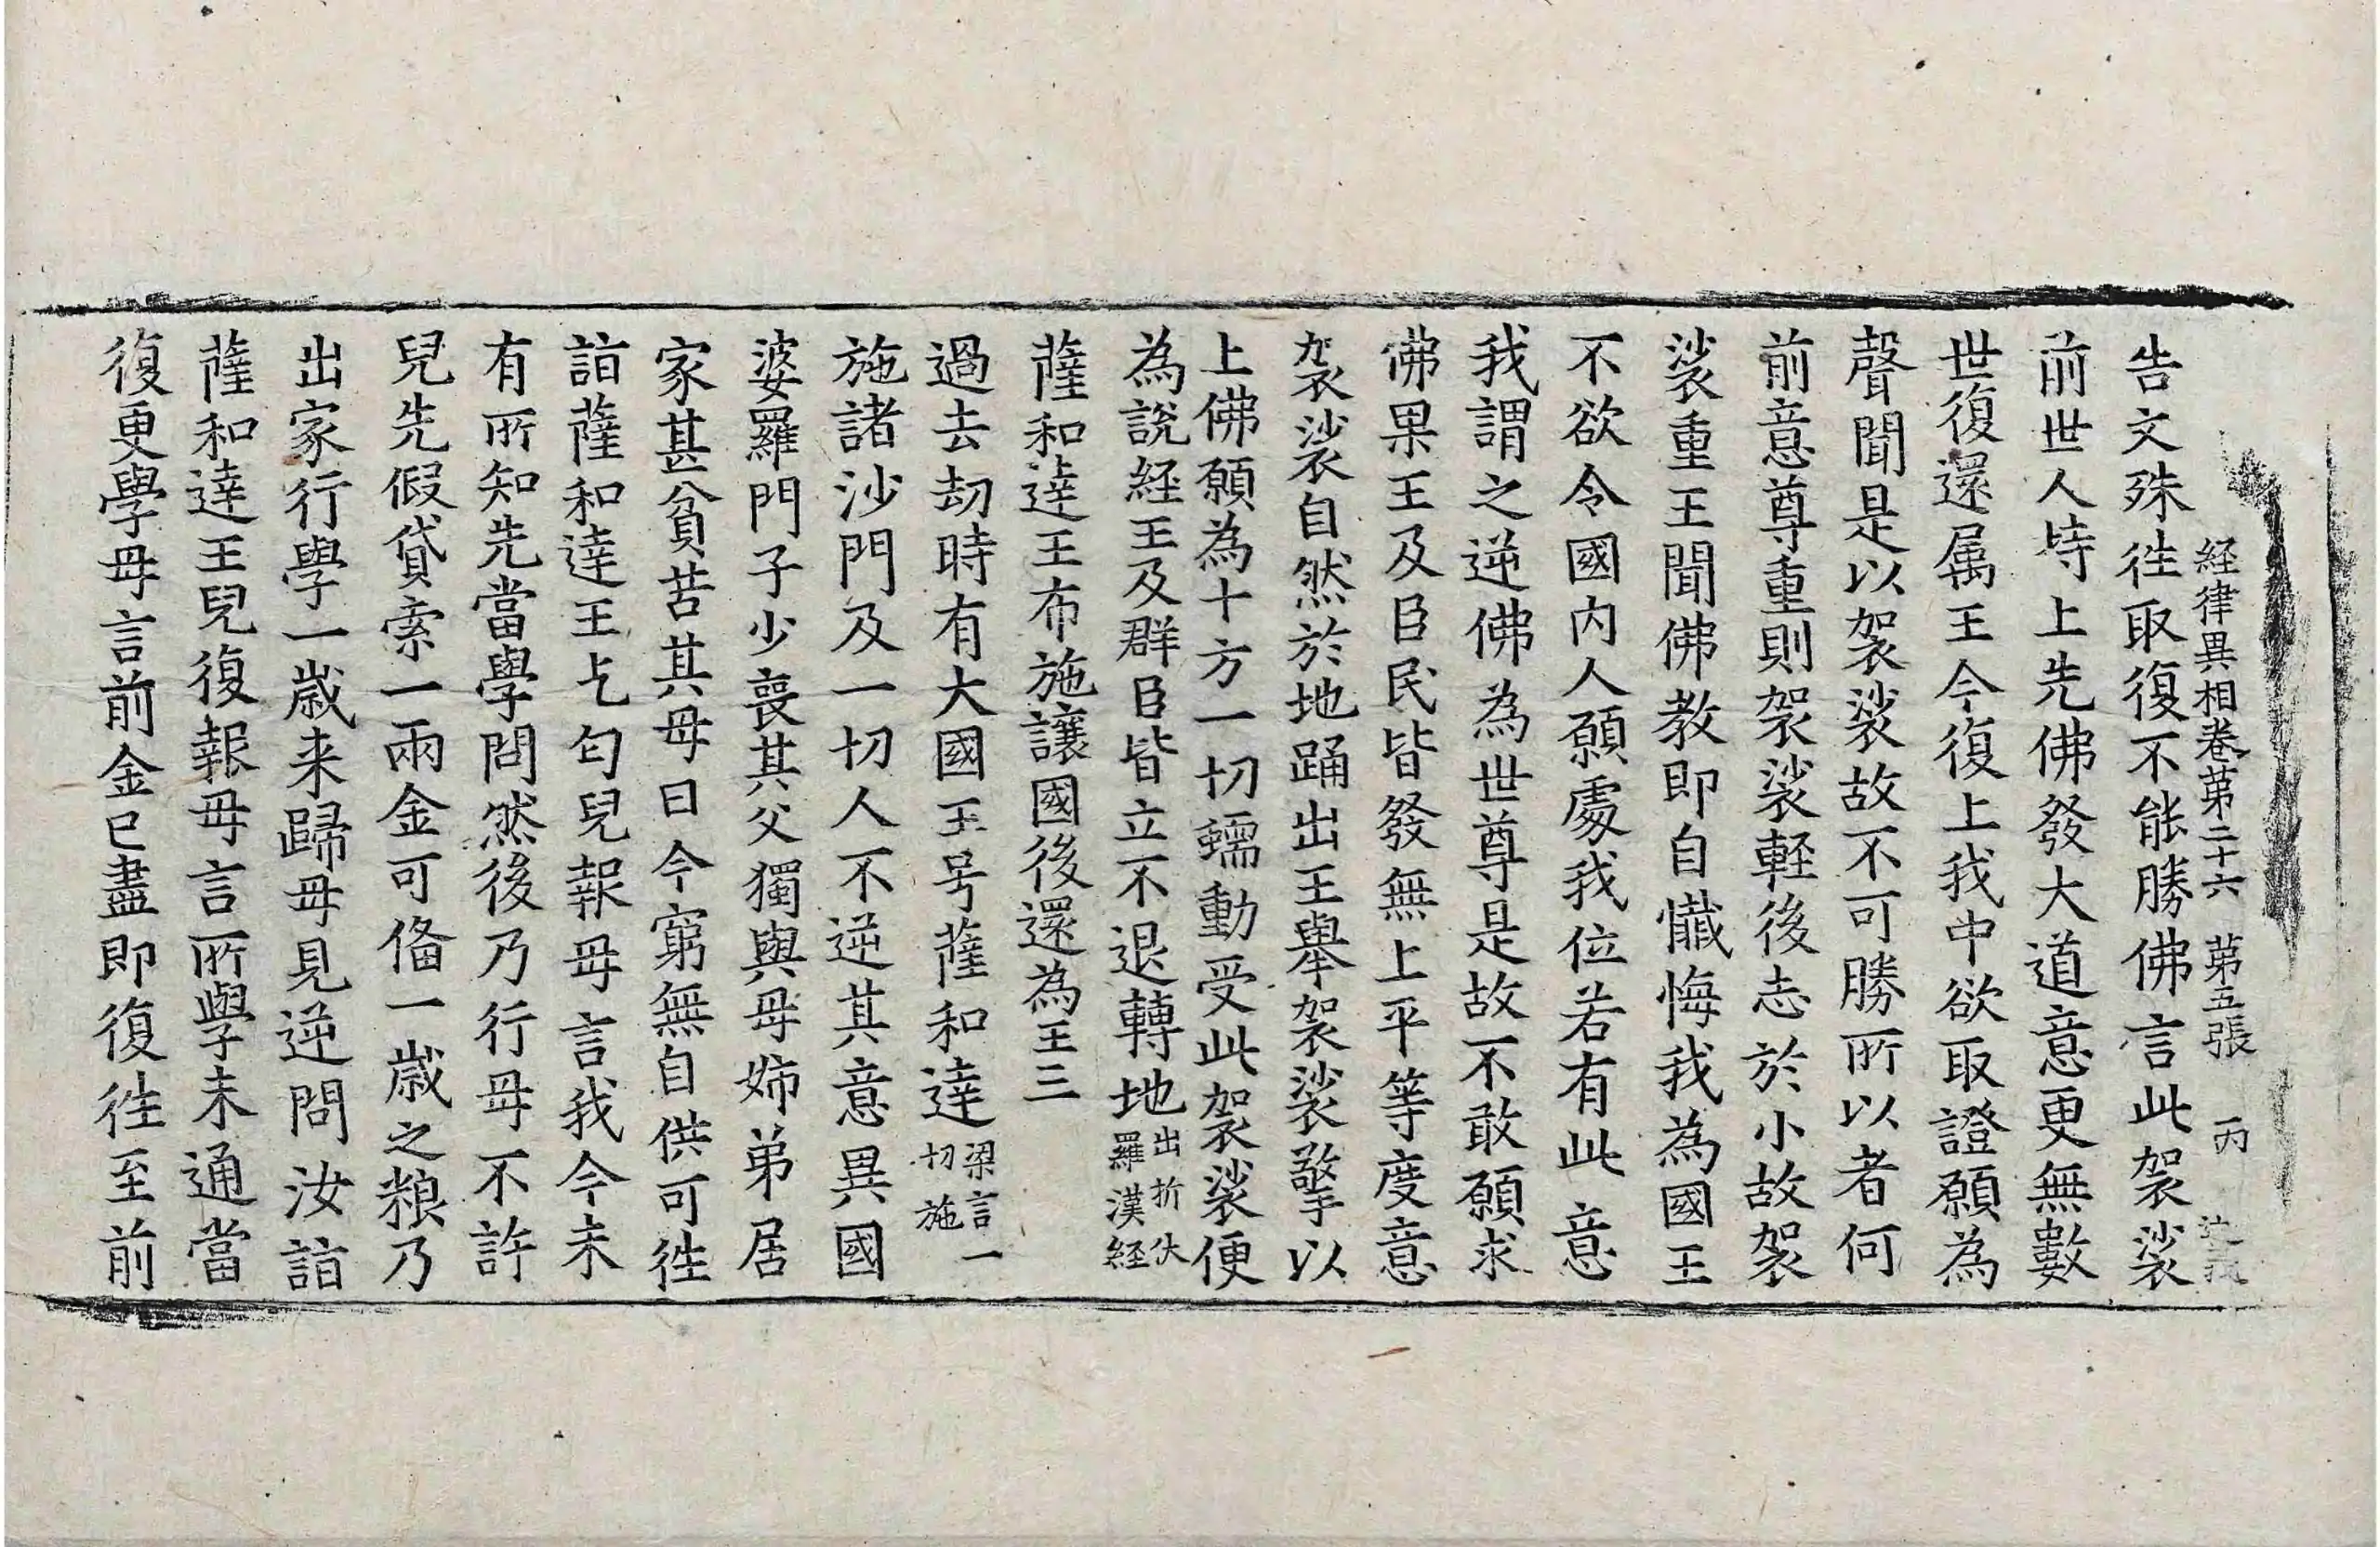 経律異相卷苐二十六　苐五張　丙
告文殊徃取復不能勝佛言此袈裟
前世人時上先佛發大道意更無數
世復還属王今復上我中欲取證願為
聲聞是以袈裟故不可勝所以者何
前意尊重則袈裟軽後志於小故袈
裟重王聞佛教即自懺悔我為國王
不欲令國内人願處我位若有此意
我謂之逆佛為世尊是故不敢願求
佛果王及臣民皆發無上平等度意
袈裟自然於地踊出王舉袈裟擎以
上佛願為十方一切蠕動受此袈裟便
為說経王及群臣皆立不退轉地出折伏羅漢経
薩和達王布施讓國後還為王三
過去劫時有大國王号薩和達梁言一切施
施諸沙門及一切人不逆其意異國
婆羅門子少喪其父獨與母姉弟居
家甚貧苦其母曰今窮無自供可徃
詣薩和達王乞匂兒報母言我今未
有所知先當學問然後乃行母不許
兒先假貸索一兩金可俻一歳之粮乃
出家行學一歳来歸母見逆問汝詣
薩和達王兒復報母言所學未通當
復更學母言前金已盡即復徃至前